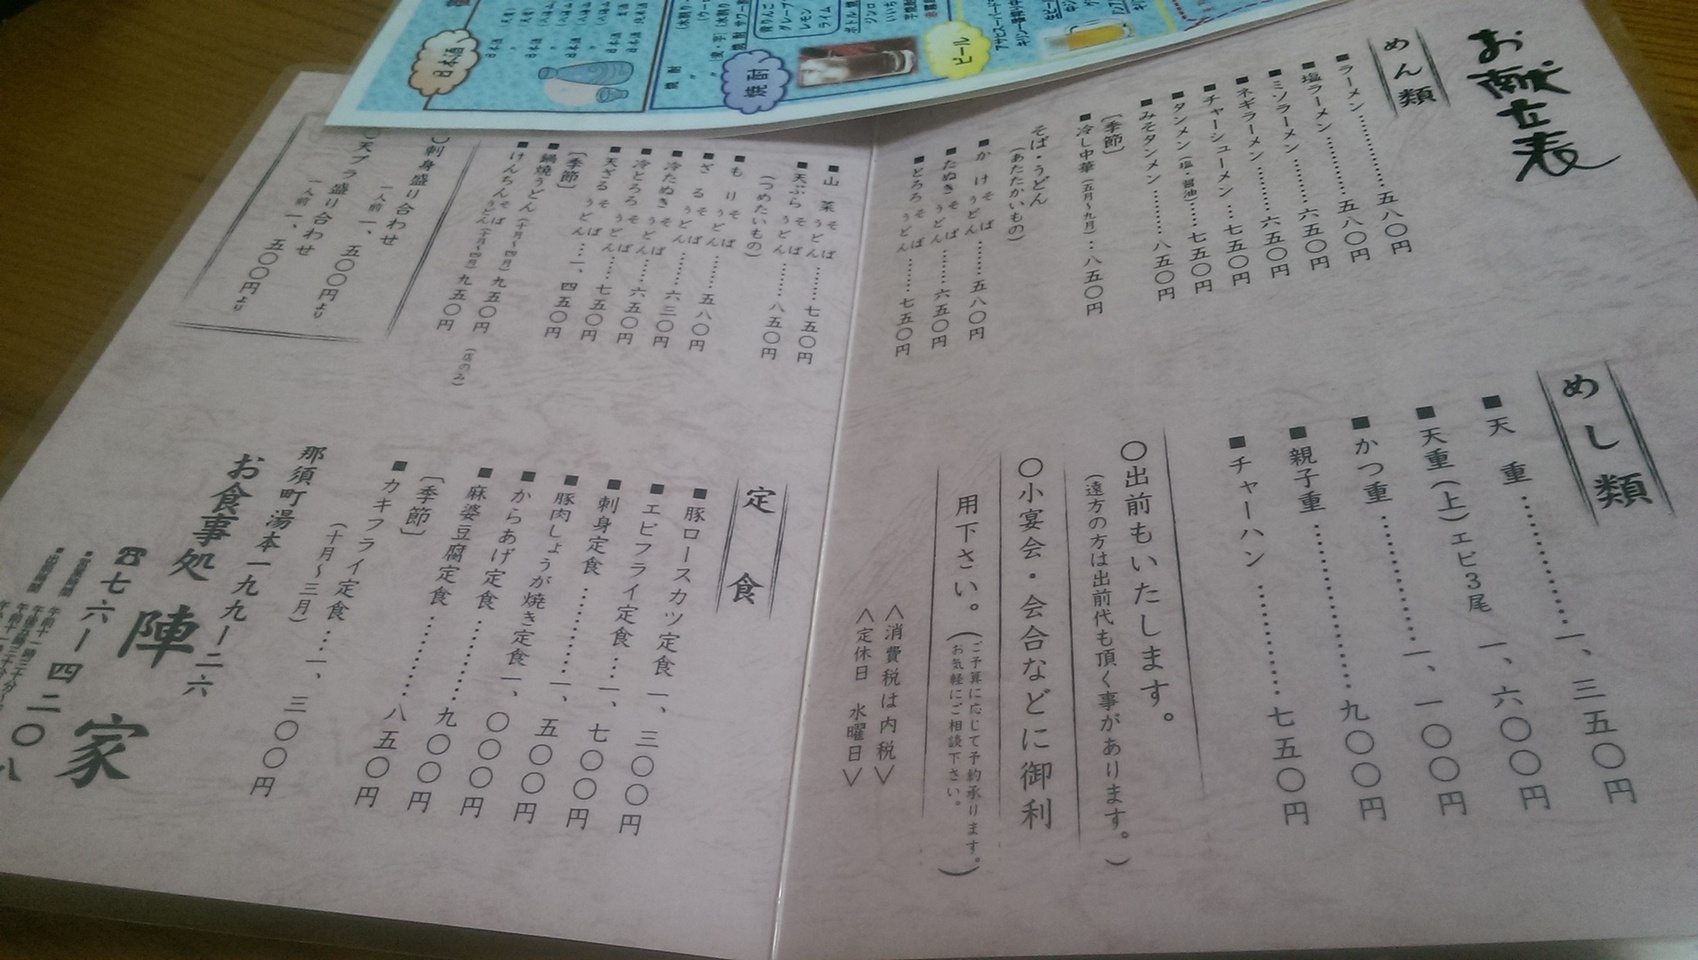 お献立表
めん類
■ラーメン…………五八〇円
■塩ラーメン………五八〇円
■ミソラーメン……六五〇円
■ネギラーメン……六五〇円
■チャーシューメン…七五〇円
■タンメン(塩・醤油)……七五〇円
■みそタンメン………八五〇円
〔季節〕
■冷し中華(五月〜九月)…八五〇円
そば・うどん
(あたたかいもの)
■かけそば うどん……五八〇円
■たぬきそば うどん……六五〇円
■とろろそば うどん……七五〇円
■山菜そば うどん……七五〇円
■天ぷらそば うどん……八五〇円
(つめたいもの)
■もりそば うどん……五八〇円
■ざるそば うどん……六三〇円
■冷たぬきそば うどん……六五〇円
■冷とろろそば うどん……七五〇円
■天ざるそば うどん…一、四五〇円
〔季節〕
■鍋焼うどん(十月〜四月)九五〇円
■けんちんそば うどん(十月〜四月)九五〇円
(店のみ)
刺身盛り合わせ
一人前 一、五〇〇円より
天プラ盛り合わせ
一人前 一、五〇〇円より
めし類
■天重…………一、三五〇円
■天重(上)エビ3尾 一、六〇〇円
■かつ重…………一、一〇〇円
■親子重…………九〇〇円
■チャーハン…………七五〇円
〇出前もいたします。
(遠方の方は出前代も頂く事があります。)
〇小宴会・会合などに御利
用下さい。(ご予算に応じて予約承ります。
お気軽にご相談下さい。)
<消費税は内税>
<定休日 水曜日>
定食
■豚ロースカツ定食 一、三〇〇円
■エビフライ定食……一、七〇〇円
■刺身定食…………一、五〇〇円
■豚肉しょうが焼き定食一、〇〇〇円
■からあげ定食…………九〇〇円
■麻婆豆腐定食…………八五〇円
〔季節〕
■カキフライ定食……一、三〇〇円
(十月〜三月)
那須町湯本一九九ー二六
お食事処 陣家
☎七六ー四二〇八
日本酒
焼酎
ビール